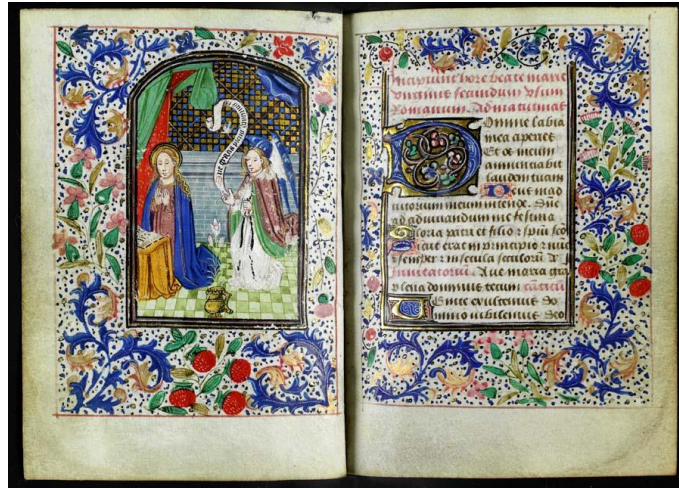 Aue gratia plena dominus
Incipiunt hore beate marie
virginis secundum vsum
Romanum. Ad matutinas
Domine labia
mea aperies
Et os meum
annunciabit
laudem tuam
Deus in ad
iutorium meum intende. Dñe
ad adiuuandum me festina
Gloria patri et filio et spũi sco
Sicut erat in principio et nũc
et semper et in secula seculorũ
Inuitatoriũ. Aue maria gra
plena dominus tecum
Venite exultemus do
mino iubilemus deo